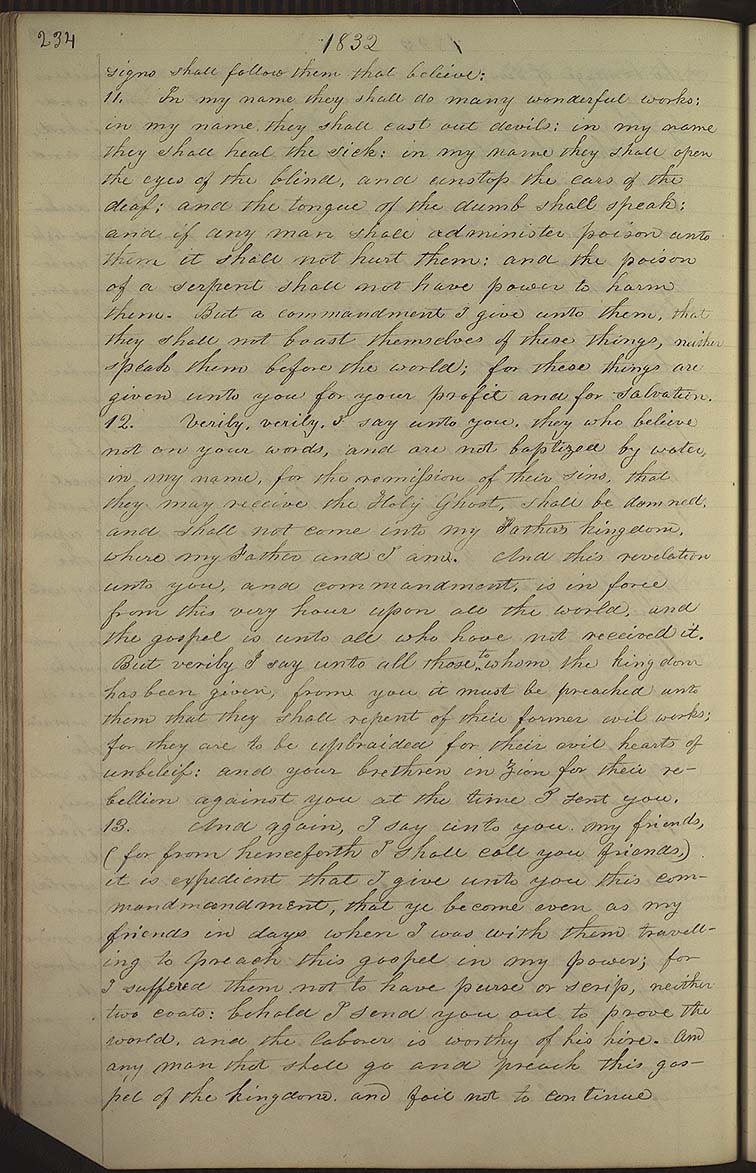 234
1832
signs shall follow them that believe:
11. In my name they shall do many wonderful works:
in my name they shall cast out devils: in my name
they shall heal the sick: in my name they shall open
the eyes of the blind, and unstop the ears of the
deaf; and the tongue of the dumb shall speak;
and if any man shall administer poison unto
them it shall not hurt them: and the poison
of a serpent shall not have power to harm
them. But a commandment I give unto them, that
they shall not boast themselves of these things, neither
speak them before the world; for these things are
given unto you for your profit and for salvation.
12. Verily, verily, I say unto you, they who believe
not on your words, and are not baptized by water,
in my name, for the remission of their sins, that
they may receive the Holy Ghost, shall be damned,
and shall not come into my Fathers kingdom,
where my Father and I am. And this revelation
unto you, and commandment, is in force
from this very hour upon all the world, and
the gospel is unto all who have not received it.
But verily I say unto all those to whom the kingdom
has been given, from you it must be preached unto
them that they shall repent of their former evil works;
for they are to be upbraided for their evil hearts of
unbeleif: and your brethren in Zion for their re-
bellion against you at the time I sent you.
13. And again, I say unto you my friends,
(for from henceforth I shall call you friends,)
it is expedient that I give unto you this com-
mandmandment, that ye become even as my
friends in days when I was with them travell-
ing to preach this gospel in my power; for
I suffered them not to have purse or scrip, neither
two coats: behold I send you out to prove the
world, and the laborer is worthy of his hire. And
any man that shall go and preach this gos-
pel of the kingdom, and fail not to continue